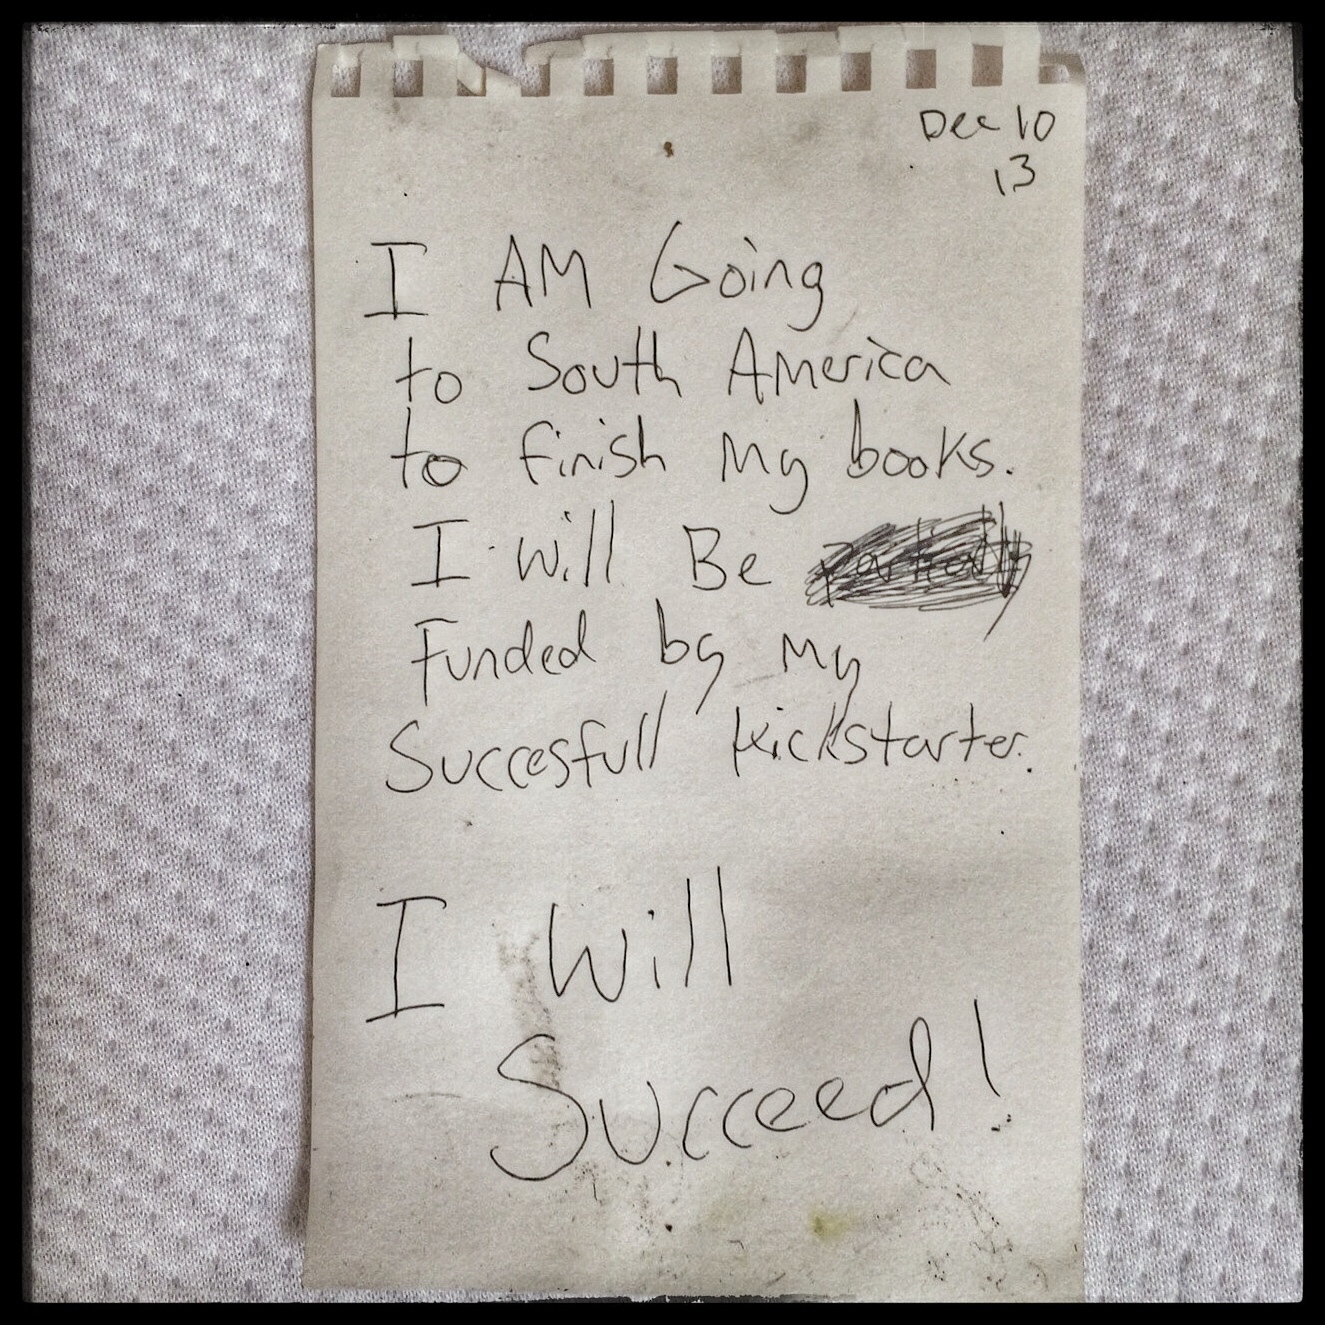 Dec 10
13
I AM Going
to South America
to finish my books.
I will Be
Funded by my
Succesfull kickstarter.
I will
Succeed!